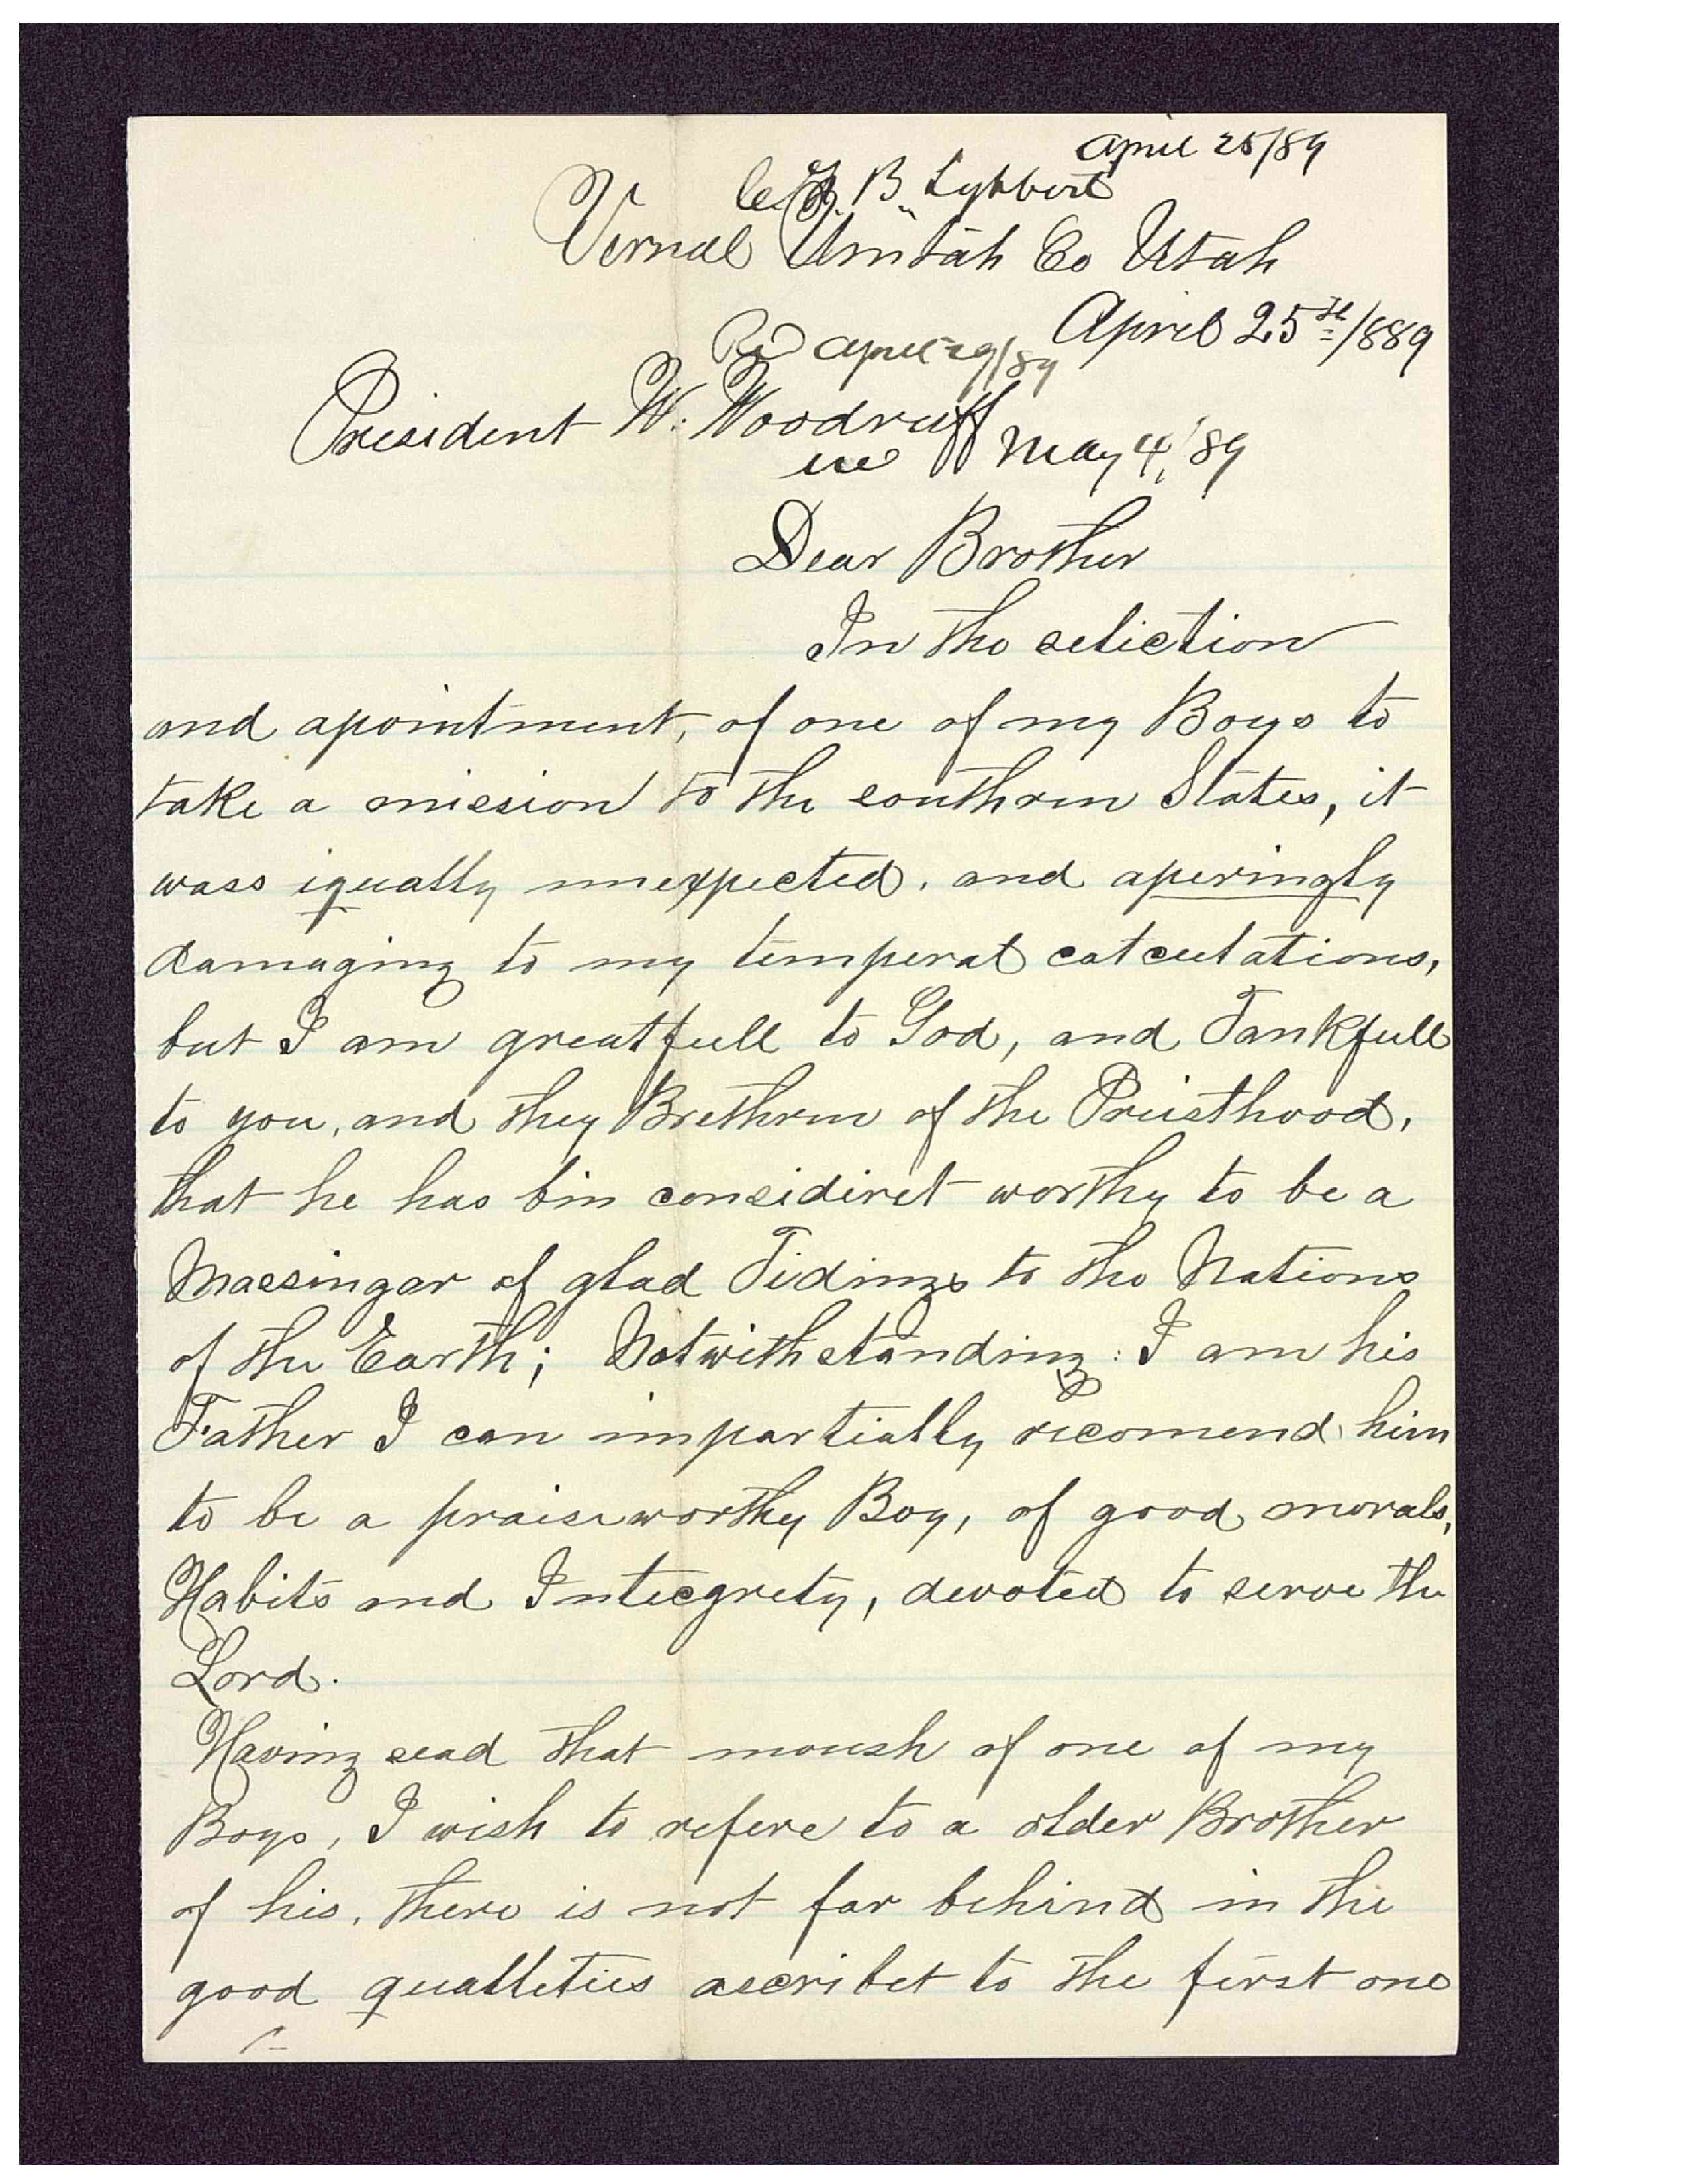 April 25/89
C. F. B. Lybbert
Vernal Uintah Co Utah
April 25th /889
Re April 29/89
President W. Woodruff
May 4,/89
Dear Brother
In the seliction
and apointment, of one of my Boys to
take a mission to the southren States, it
wass iqually unexpected, and aperingly
damaging to my temperal calculations,
but I am greatfull to God, and Tankfull
to you, and they Brethren of the Priesthood,
that he has bin considiret worthy to be a
Massingar of glad Tidings to the Nations
of the Earth; Notwithstanding: I am his
Father I can impartially recomend him
to be a praiseworthy Boy, of good morals,
Habits and Intecgrety, devoted to serve the
Lord.
Having sead that moush of one of my
Boys, I wish to refere to a older Brother
of his, there is not far behind in the
good qualleties ascribet to the first one